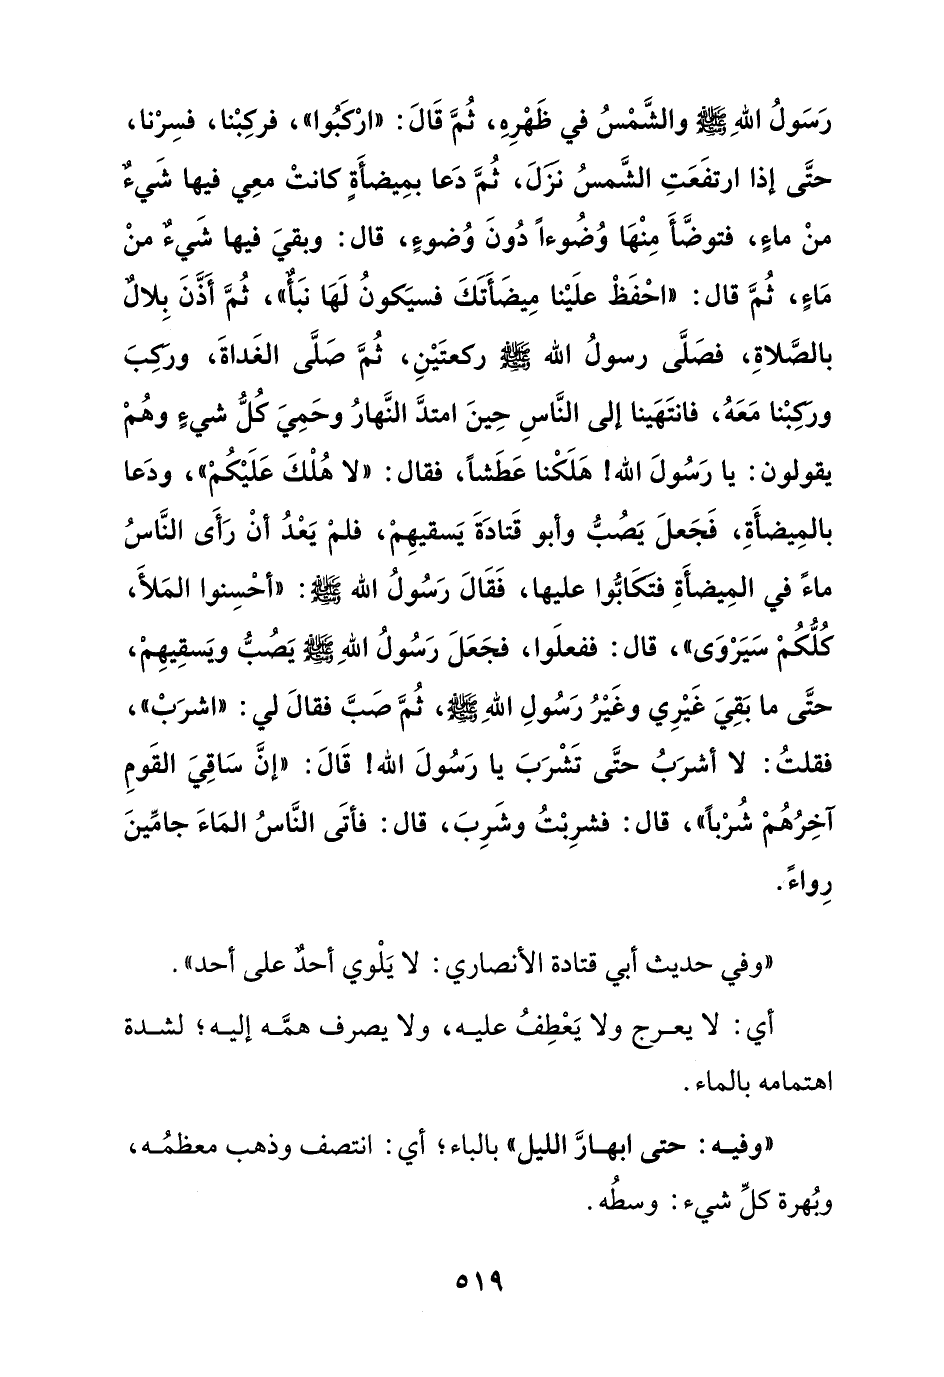 رَسَولُ اللهِ ﷺ والشَّمْسُ في ظَهْرِهِ، ثُمَّ قَالَ: «ارْكَبُوا»، فركِبْنا، فسِرْنا،
حتَّى إذا ارتفَعَتِ الشَّمسُ نزَلَ، ثُمَّ دَعا بمِيضأَةٍ كانتْ معِي فيها شَيءٌ
منْ ماءٍ، فتوضَّأَ مِنْهَا وُضُوءاً دُونَ وُضوءٍ، قال: وبقيَ فيها شَيءٌ منْ
مَاءٍ، ثُمَّ قال: «احْفَظْ علَيْنا مِيضَأَتَكَ فسيَكونُ لَهَا نبَأٌ»، ثُمَّ أَذَّنَ بِلالٌ
بالصَّلاةِ، فصَلَّى رسولُ الله ﷺ ركعتَيْنِ، ثُمَّ صَلَّى الغَداةَ، وركِبَ
وركِبْنا مَعَهُ، فانتَهَينا إلى النَّاسِ حِينَ امتدَّ النَّهارُ وحَمِيَ كُلُّ شيءٍ وهُمْ
يقولون: يا رَسُولَ الله! هَلَكْنا عَطَشاً، فقال: «لا هُلْكَ عَلَيْكُمْ»، ودَعا
بالمِيضأَةِ، فَجَعلَ يَصُبُّ وأبو قَتادَةَ يَسقيهِمْ، فلمْ يَعْدُ أنْ رَأَى النَّاسُ
ماءً في المِيضأَةِ فتَكَابُّوا عليها، فَقَالَ رَسُولُ الله ﷺ: «أحْسِنوا المَلأَ،
كُلُّكُمْ سَيَرْوَى»، قال: ففعلَوا، فجَعَلَ رَسُولُ اللهِ ﷺ يَصُبُّ ويَسقِيهِمْ،
حتَّى ما بَقِيَ غَيْرِي وغَيْرُ رَسُولِ اللهِ ﷺ، ثُمَّ صَبَّ فقالَ لي: «اشرَبْ»،
فقلتُ: لا أشرَبُ حتَّى تَشْرَبَ يا رَسُولَ الله! قَالَ: «إنَّ سَاقِيَ القَومِ
آخِرُهُمْ شُرْباً»، قال: فشرِبْتُ وشَرِبَ، قال: فأتَى النَّاسُ المَاءَ جامِّينَ
رِواءً.
«وفي حديث أبي قتادة الأنصاري: لا يَلْوي أحدٌ على أحد».
أي: لا يعرج ولا يَعْطِفُ عليه، ولا يصرف همَّه إليه؛ لشدة
اهتمامه بالماء.
«وفيه: حتى ابهارَّ الليل» بالباء؛ أي: انتصف وذهب معظمُه،
وبُهرة كلِّ شيء: وسطُه.
٥١٩